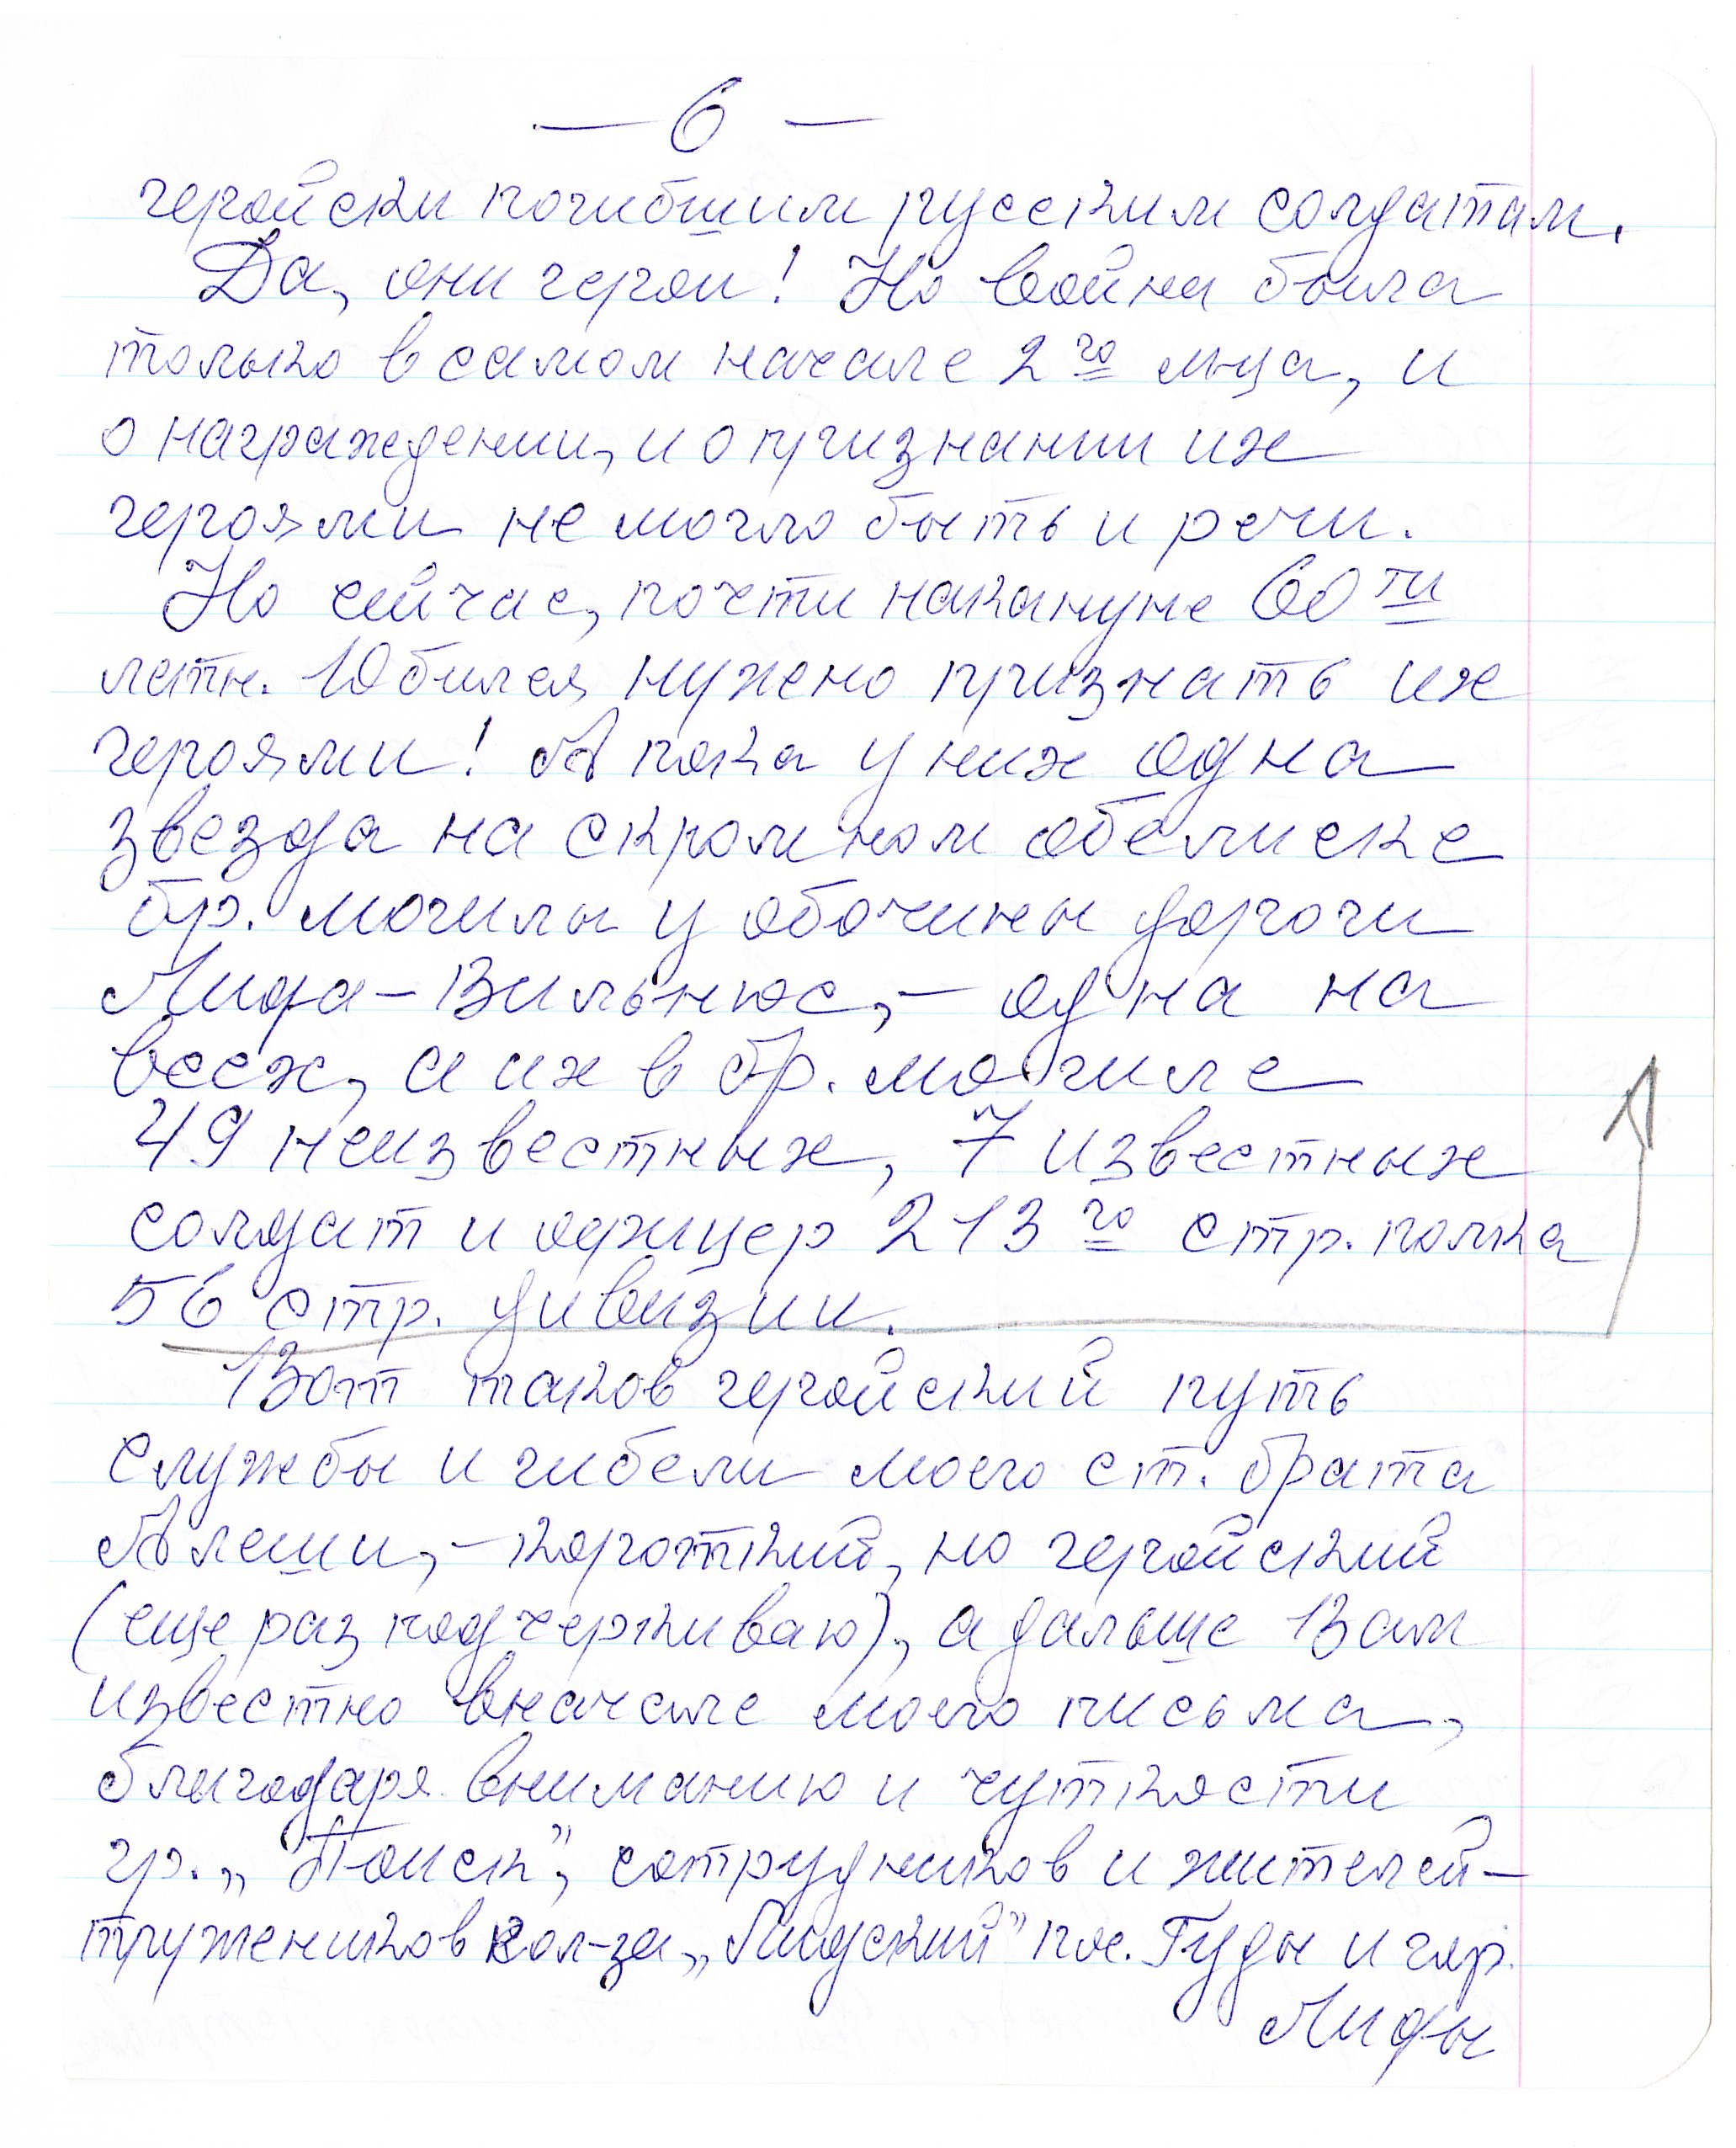 — 6 —
геройски погибшим русским солдатам.
Да, они герои! Но война была
только в самом начале 2го м-ца, и
о награждении, и о признании их
героями не могло быть и речи.
Но сейчас, почти накануне 60ти
летн. Юбилея нужно признать их
героями! А пока у них одна
звезда на скромном обелиске
бр. могилы у обочины дороги
Лида-Вильнюс, – одна на
всех, а их в бр. могиле
49 неизвестных, 7 известных
солдат и офицер 213го стр. полка
56 стр. дивизии.
Вот таков геройский путь
службы и гибели моего ст. брата
Алеши, – короткий, но геройский
(еще раз подчеркиваю), а дальше Вам
известно вначале моего письма,
благодаря вниманию и чуткости
гр. „Поиск", сотрудников и жителей –
тружеников кол-за „Лидский" пос. Гуды и гор.
Лиды